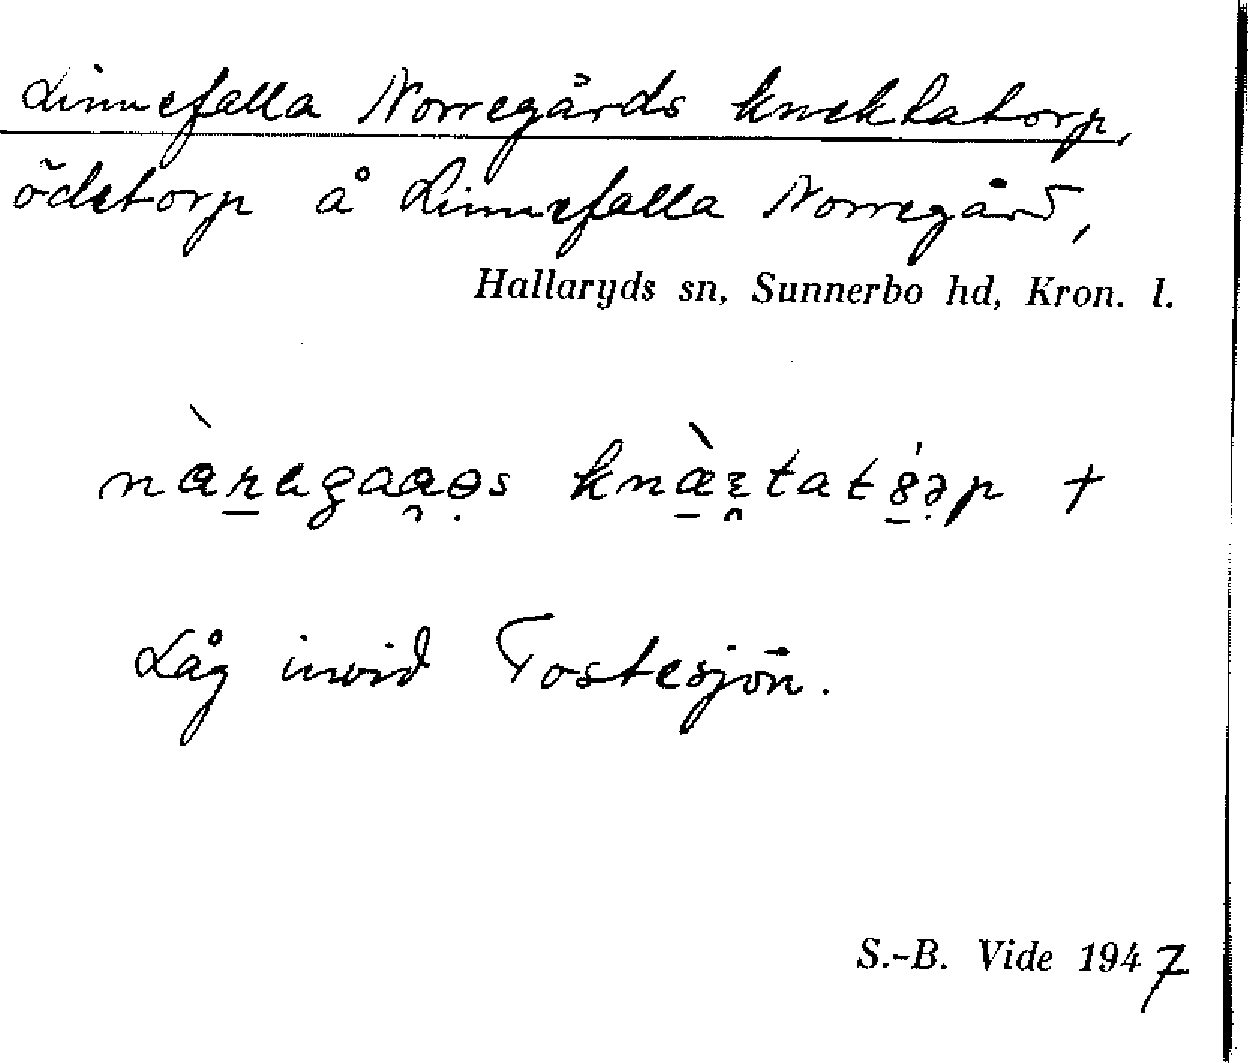 Linnefalla Norregårds knektatorp,
ödetorp å Linnefalla Norregård,
Hallaryds sn, Sunnerbo hd, Kron. l.
Låg invid Tostesjön.
S.-B. Vide 1947